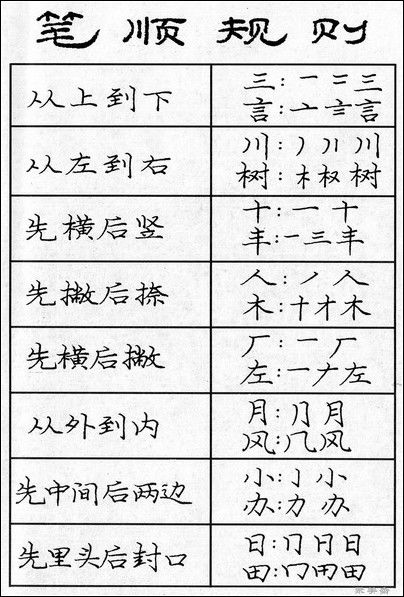 笔顺规则
从上到下
三：一 二 三
言：亠 言 言
从左到右
川：丿 丿丨 川
树：木 权 树
先横后竖
十：一 十
丰：一 三 丰
先撇后捺
人：丿 人
木：十 才 木
先横后撇
厂：一 厂
左：一 𠂇 左
从外到内
月：⺆ 月
风：几 风
先中间后两边
小：亅 小
办：力 办
先里头后封口
日：冂 月 日
田：冂 用 田